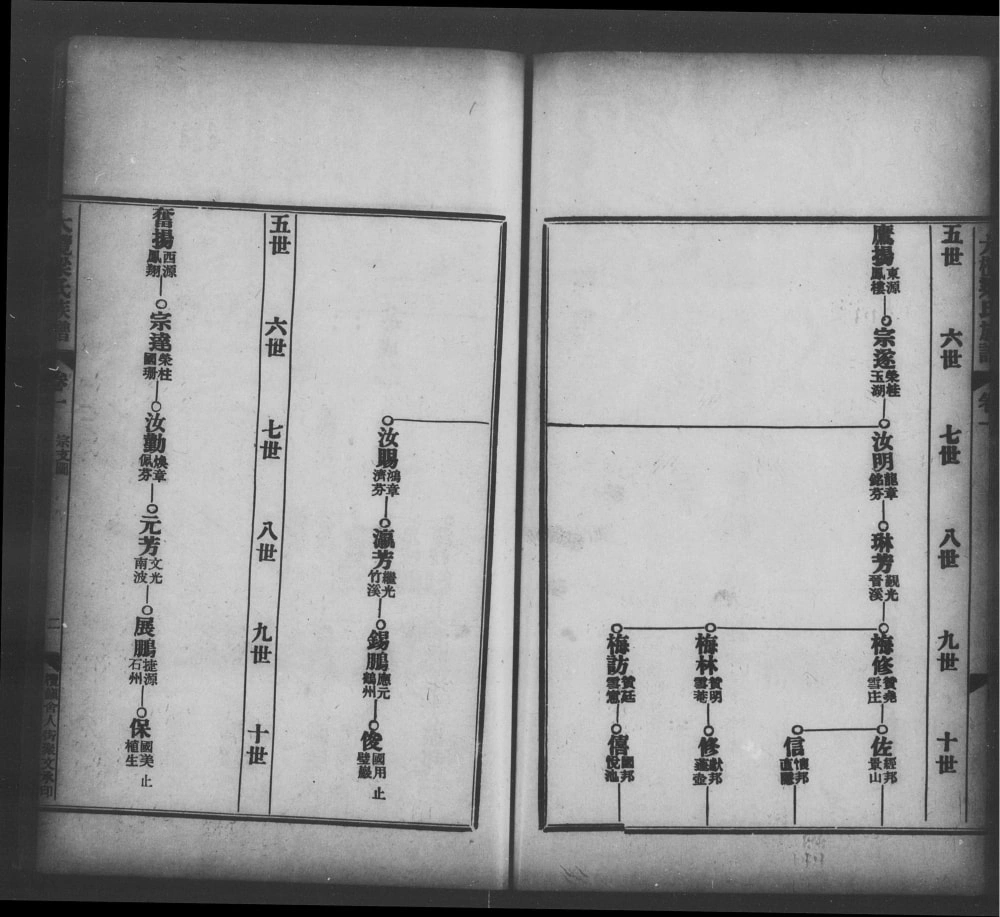 五世
六世
七世
八世
九世
十世
鷹揚 東源 鳳樓
宗遂 榮桂 玉湖
汝明 龍章 銘芬
琳芳 觀光 晉溪
梅修 贊堯 雲庄
佐 經邦 景山
信 懷邦
梅林 贊明 雲菴
修 獻邦
梅訪 贊廷 雲窻
僖 國邦 悅池
汝賜 鴻章 濟芬
瀛芳 繼光 竹溪
錫鵬 應元 鶴州
俊 國用 璧巖 止
五世
六世
七世
八世
九世
十世
奮揚 西源 鳳翔
宗達 榮柱 國珊
汝勤 煥章 佩芬
元芳 文光 南波
展鵬 㨗源 石州
保 國美 植生 止
氏族譜
卷一
宗支圖
二